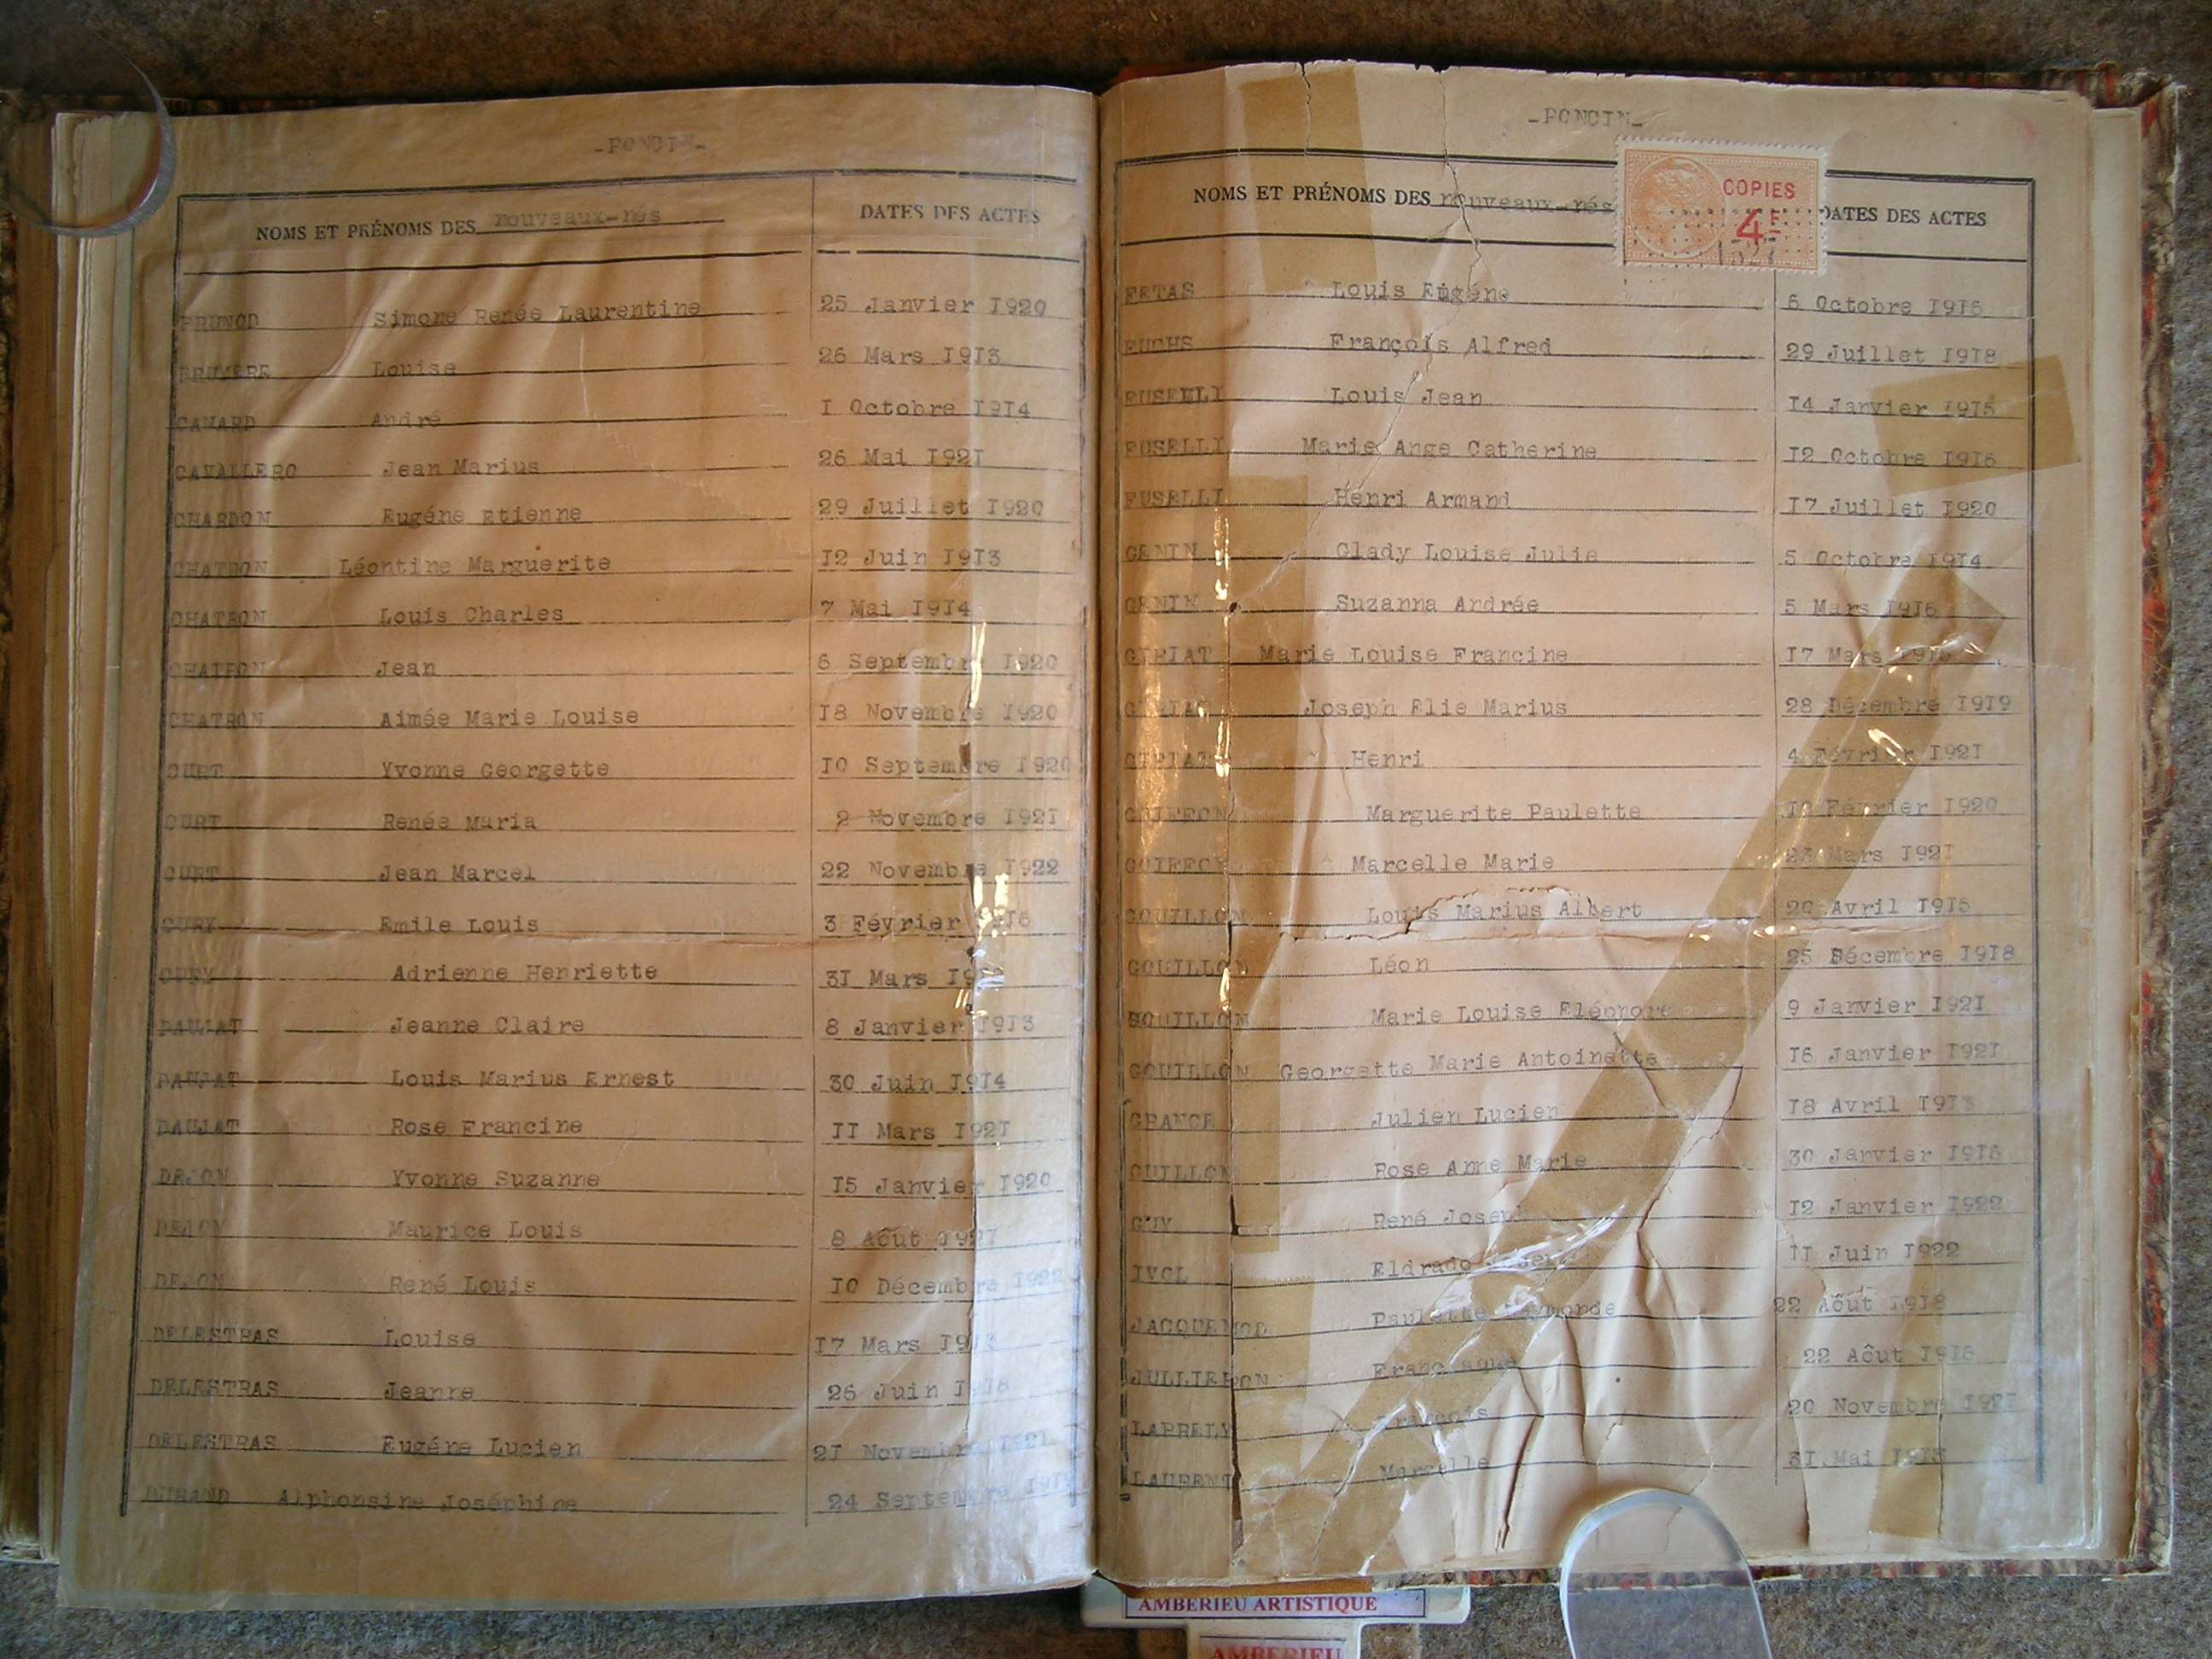 -PONCIN-
NOMS ET PRÉNOMS DES nouveaux-nés DATES DES ACTES
BRUNOD Simone Renée Laurentine 25 Janvier 1920
BRUYERE Louise 26 Mars 1913
CAMARD André 1 Octobre 1914
CAVALLERO Jean Marius 26 Mai 1921
CHARDON Eugéne Etienne 29 Juillet 1920
CHATRON Léontine Marguerite 12 Juin 1913
CHATRON Louis Charles 7 Mai 1914
CHATRON Jean 6 Septembre 1920
CHATRON Aimée Marie Louise 18 Novembre 1920
CURT Yvonne Georgette 10 Septembre 1920
CURT Renée Maria 2 Novembre 1921
CURT Jean Marcel 22 Novembre 1922
CURY Emile Louis 3 Février
CURY Adrienne Henriette 31 Mars
DAUJAT Jeanne Claire 8 Janvier 1913
DAUJAT Louis Marius Ernest 30 Juin 1914
DAUJAT Rose Francine 11 Mars 1921
DEJON Yvonne Suzanne 15 Janvier 1920
DEJON Maurice Louis 8 Aôut 1921
DEJON René Louis 10 Décembre 1922
DELESTRAS Louise 17 Mars
DELESTRAS Jeanne 26 Juin
DELESTRAS Eugéne Lucien 21 Novembre 1921
DURAND Alphonsine Joséphine 24 Septembre
-PONCIN-
NOMS ET PRÉNOMS DES nouveaux-nés DATES DES ACTES
COPIES
4F
FETAS Louis Eugéne 6 Octobre 1916
FUCHS François Alfred 29 Juillet 1918
FUSELLI Louis Jean 14 Janvier 1915
FUSELLI Marie Ange Catherine 12 Octobre 1916
FUSELLI Henri Armand 17 Juillet 1920
GENIN Glady Louise Julie 5 Octobre 1914
GENIN Suzanna Andrée 5 Mars 1916
GIRIAT Marie Louise Francine 17 Mars
GIRIAT Joseph Elie Marius 28 Décembre 1919
GIRIAT Henri 4 Février 1921
GOIFFON Marguerite Paulette 10 Février 1920
GOIFFON Marcelle Marie 23 Mars 1921
GOUILLON Louis Marius Albert Avril 1915
GOUILLON Léon 25 Décembre 1918
GOUILLON Marie Louise Eléonore 9 Janvier 1921
GOUILLON Georgette Marie Antoinette 16 Janvier 1921
GRANGE Julien Lucien 18 Avril
GUILLON Rose Anne Marie 30 Janvier 1916
GUY René Joseph 12 Janvier 1922
IVOL Eldrado 11 Juin 1922
JACQUEMOD Paulette Raymonde 22 Aôut 1918
JULLIERON 22 Aôut
François 20 Novembre
LAURENT Marcelle 31 Mai
AMBERIEU ARTISTIQUE
AMBERIEU